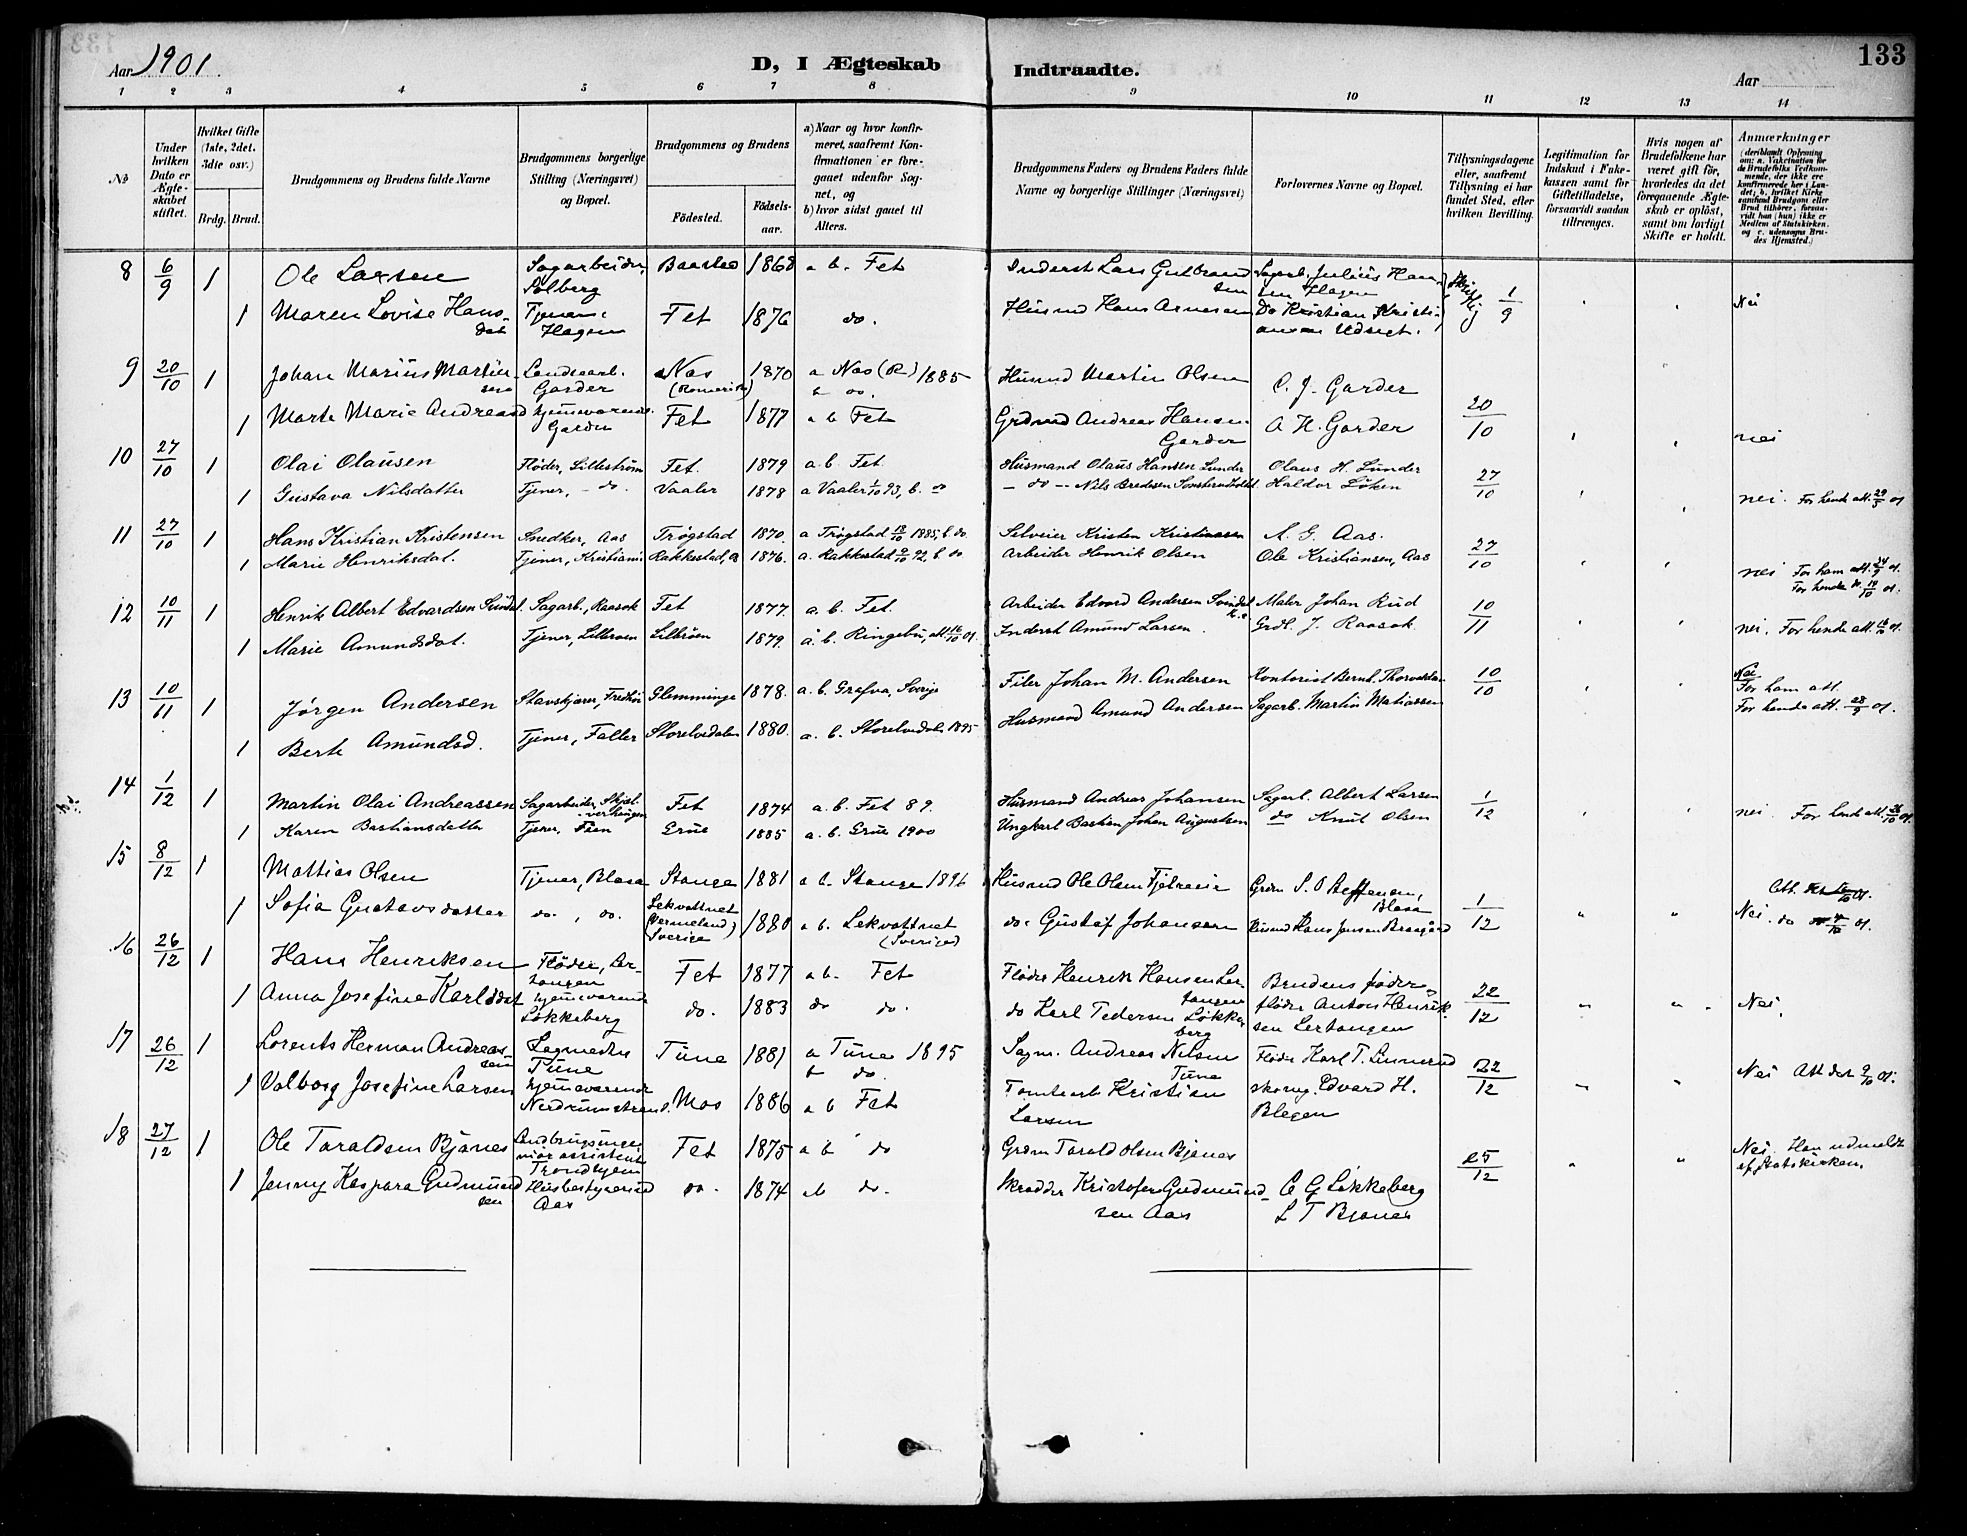 Aar 1901.
D, I Ægteskab
Indtraadte.
133
Aar
1 2 3 4 5 6 7 8 9 10 11 12 13 14
№
Under hvilken Dato er Ægteskabet stiftet.
Hvilket Gifte (1ste, 2det, 3die osv.)
Brdg. Brud.
Brudgommens og Brudens fulde Navne
Brudgommens borgerlige Stilling (Næringsvei) og Bopæl.
Brudgommens og Brudens
Fødested.
Fødselsaar.
a) Naar og hvor konfirmeret, saafremt Konfirmationen er foregaaet udenfor Sognet, og
b) hvor sidst gaaet til Alters.
Brudgommens Faders og Brudens Faders fulde Navne og borgerlige Stillinger (Næringsvei)
Forlovernes Navne og Bopæl.
Tillysningsdagene eller, saafremt Tillysning ei har fundet Sted, efter hvilken Bevilling.
Legitimation for Indskud i Enkekassen samt for Giftetilladelse, forsaavidt saadan tiltrænges.
Hvis nogen af Brudefolkene har været gift før, hvorledes da det foregaaende Ægteskab er opløst, samt om lovligt Skifte er holdt.
Anmærkninger
(deriblandt Oplysning om: a. Vakcination for de Brudefolks Vedkommende, der ikke ere konfirmerede her i Landet; b. hvilket Kirkesamfund Brudgom eller Brud tilhører, forsaavidt han (hun) ikke er Medlem af Statskirken, og c. udensogns Brudes Hjemsted.)
8 6/9 1 Ole Larsen Sagarbeider, Solberg Baastad 1868 a b. Fet Inderst Lars Gulbrandsen Sagarb. Julius Hansen Hagen 1/9
1 Maren Lovise Hansdat Tjener Hagen Fet 1876 do. Husmd Hans Arnesen Do Kristian Kristiansen Udsigt. Nei
9 20/10 1 Johan Marius Martinsen Landarb. Garder Næs (Romerike) 1870 a Næs (R) 1885 b do. Husmd Martin Olsen C. J. Garder
1 Marte Marie Andreasd hjemværende Garder Fet 1877 a b Fet Grdmd Andreas Hansen Garder A H. Garder 20/10 nei
10 27/10 1 Olai Olausen Fløder, Lillestrøm Fet. 1879 a.b. Fet. Husmand Olaus Hansen Lunder Olaus H. Lunder
1 Gustava Nilsdatter Tjener, - do. Vaaler 1878 a Vaaler 1/10 93, b. do - do -- Nils Bredesen Haldor Løken 27/10 nei. For hende att. 29/5 01
11 27/10 1 Hans Kristian Kristensen Snedker, Aas Trøgstad 1870. a Trøgstad 1885, b do. Selveier Kristen Kristiansen A. G. Aas.
1 Marie Henriksdat. Tjener, Kristiania Rakkestad, 1876. a. Rakkestad 2/10 92, b do Arbeider Henrik Olsen Ole Kristiansen, Aas 27/10 nei For ham att. 24/9 01.
For hende do. 19/10 01.
12 10/11 1 Henrik Albert Edvardsen Svindal Sagarb., Raasok Fet 1877. a. b. Fet. Arbeider Edvard Andersen Svindal Maler Johan Rud 10/11
1 Marie Amundsdat. Tjener, Lilleroen Lilleroen 1879. a. b. Ringebu, att. 16/10 01. Inderst Amund Larsen. Grdl. J. Raasok nei. For hende att. 16/10 01.
13 10/11 1 Jørgen Andersen Glemminge 1878. a. b. Grafva, Sverige Filer Johan M. Andersen Kontorist Bernt. Thorvaldsen 10/10 Nei
For ham att.
For hende att. 28/9 01.
1 Berte Amundsd. Tjener, Faller Storelvedalen 1880. a. b. Storelvedalen 1895 Husmand Amund Andersen Sagarb. Martin Matiassen
14 1/12 1 Martin Olai Andreassen Sagarbeider, Fet 1874 a. b. Fet 89. Husmand Andreas Johansen Sagarb. Albert Larsen 1/12
1 Karen Bastiansdatter Tjener, Grue 1885 a. b. Grue 1900 Ungkarl Bastian Johan Augustsen do Knut Olsen nei. For hende att. 26/10 01.
15 8/12 1 Mattias Olsen Tjener, Blasa Stange 1881 a b. Stange 1896 Husmd Ole Olsen Grdm S. O Steffensen, Blasa Att.
1 Sofia Gustavsdatter do., do. Lekvattnet (Vermeland) Sverige 1880 a b. Lekvattnet (Sverige) do. Gustaf Johansson Husmd Hans Jensen 1/12 Nei. do
16 26/12 1 Hans Henriksen Fløder, Lertangen Fet 1877 a b. Fet Fløder Henrik Hansen Lertangen Brudens fader
1 Anna Josefine Karlsdat hjemværende Løkkeberg do. 1883 do do. do Karl Pedersen Løkkeberg fløder Anton Henriksen Lertangen 22/12 Nei.
17 26/12 1 Lorents Herman Andreassen Sagmester Tune Tune 1881 a Tune 1895 b do. Sagm. Andreas Nilsen Tune Fløder Karl T. Linnerud
1 Valborg Josefine Larsen hjemværende Nerdrumstrand. Mos 1886 a b Fet Tomtearb Kristian Larsen skomg. Edvard H. Blegen 22/12 Nei Att der 9/10 01.
18 27/12 1 Ole Taraldsen Bjanes Landbrugsingeniør assistent Trondhjem Fet 1875 a b do Grdm Tarald Olsen Bjanes
1 Jenny Kaspara Gudmundsen Husbestyrerind Aas do. 1874 ab do. Skrædder Kristofer Gudmundsen Aas C G Løkkeberg
L T Bjanes 25/12 Nei. Han udmeldt af Statskirken.